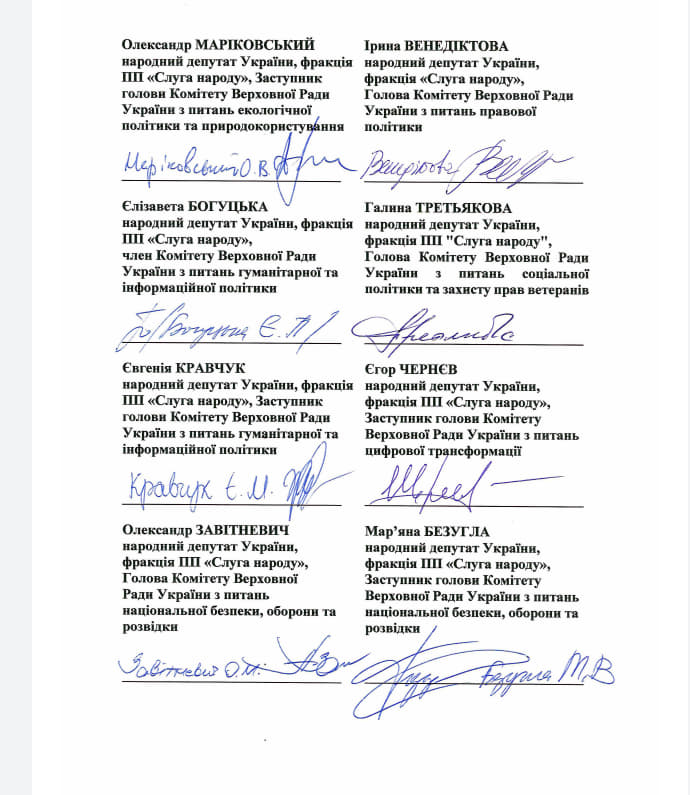 Олександр МАРІКОВСЬКИЙ
народний депутат України, фракція
ПП «Слуга народу», Заступник
голови Комітету Верховної Ради
України з питань екологічної
політики та природокористування
Маріковський О.В.
Ірина ВЕНЕДІКТОВА
народний депутат України,
фракція «Слуга народу»,
Голова Комітету Верховної Ради
України з питань правової
політики
Венедіктова
Єлізавета БОГУЦЬКА
народний депутат України, фракція
ПП «Слуга народу»,
член Комітету Верховної Ради
України з питань гуманітарної та
інформаційної політики
Богуцька Є.П.
Галина ТРЕТЬЯКОВА
народний депутат України,
фракція ПП "Слуга народу",
Голова Комітету Верховної Ради
України з питань соціальної
політики та захисту прав ветеранів
Євгенія КРАВЧУК
народний депутат України, фракція
ПП «Слуга народу», Заступник
голови Комітету Верховної Ради
України з питань гуманітарної та
інформаційної політики
Кравчук Є.М.
Єгор ЧЕРНЄВ
народний депутат України,
фракція ПП «Слуга народу»,
Заступник голови Комітету
Верховної Ради України з питань
цифрової трансформації
Олександр ЗАВІТНЕВИЧ
народний депутат України,
фракція ПП «Слуга народу»,
Голова Комітету Верховної
Ради України з питань
національної безпеки, оборони та
розвідки
Завітневич О.М.
Мар’яна БЕЗУГЛА
народний депутат України,
фракція ПП «Слуга народу»,
Заступник голови Комітету
Верховної Ради України з питань
національної безпеки, оборони та
розвідки
Безугла М.В